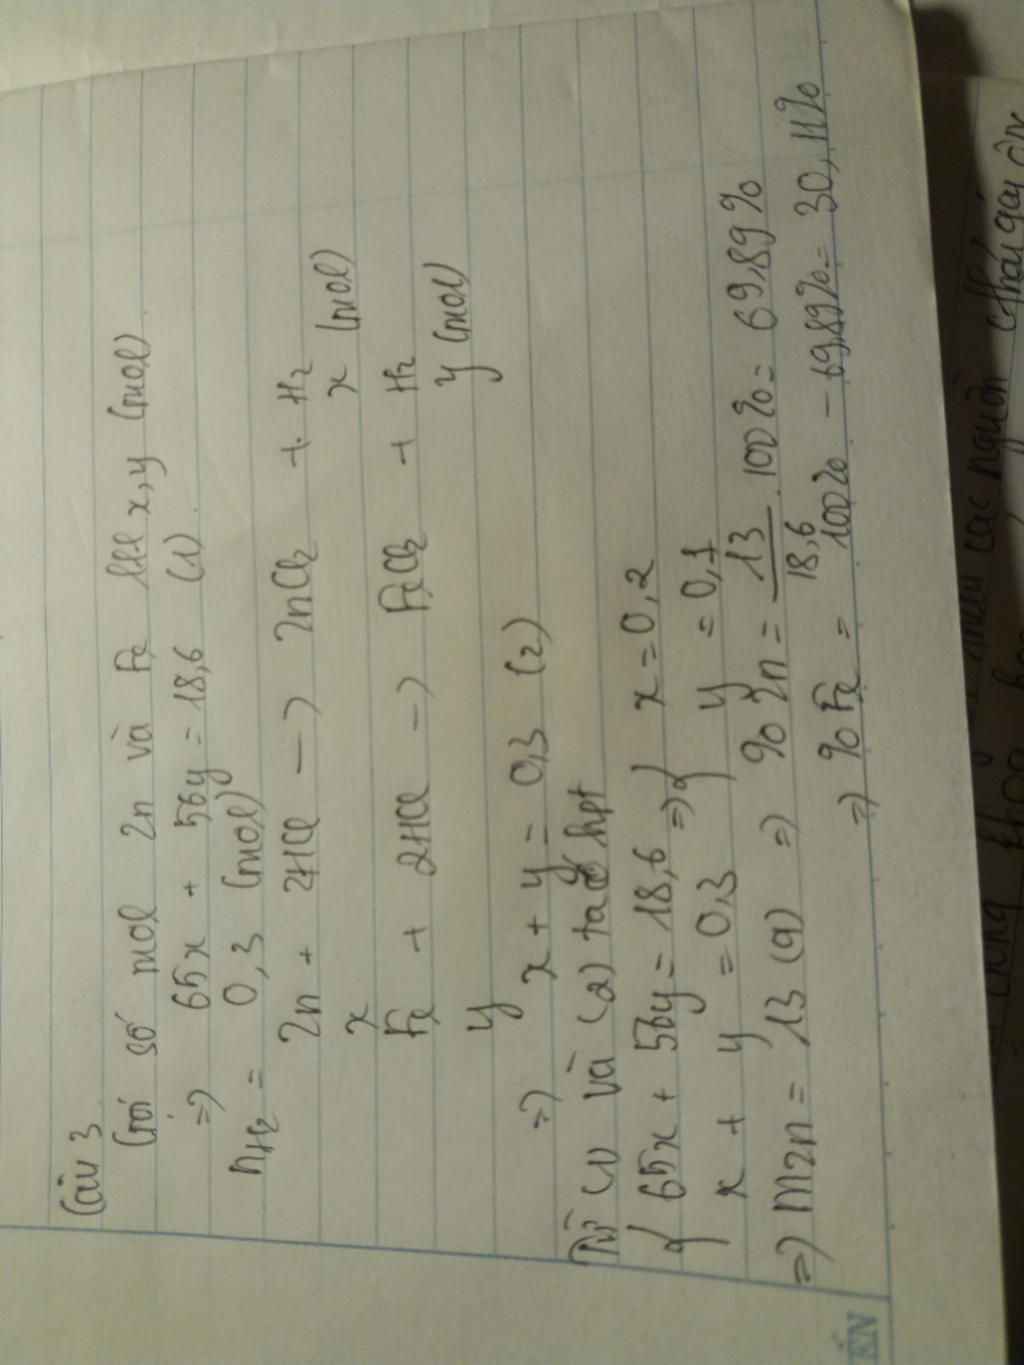 Câu 3
Gọi số mol Zn và Fe lll x, y (mol)
=> 65x + 56y = 18,6 (1)
nH₂ = 0,3 (mol)
Zn + 2HCl -> ZnCl₂ + H₂
x x (mol)
Fe + 2HCl -> FeCl₂ + H₂
y y (mol)
=> x + y = 0,3 (2)
Từ (1) và (2) ta có hpt
{ 65x + 56y = 18,6 => { x = 0,2
x + y = 0,3 y = 0,1
=> mZn = 13 (g) => % Zn = 13/18,6 . 100% = 69,89%
=> % Fe = 100% - 69,89% = 30,11%
ẾN
các nguồn